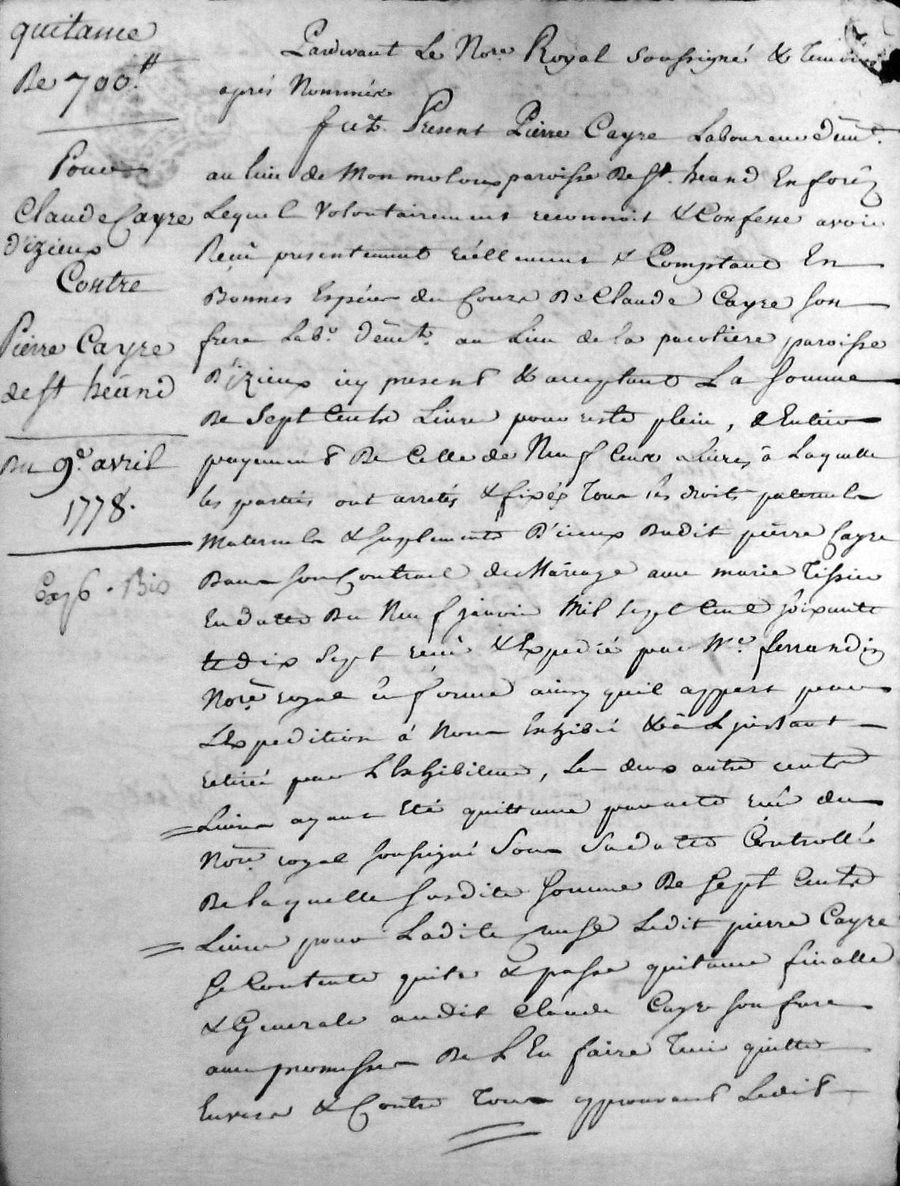 quitance
De 700.tt
Pour
Claude Cayre
d'izieux
Contre
Pierre Cayre
de st heand
Du 9e. avril
1778.
Pardevant Le Nore. Royal soussigné & Temoins
aprés Nommés
fut Present Pierre Cayre Laboureur demt.
au lieu de Monmoloux paroisse De st. heand En forêz
Lequel Volontairement reconnoit & Confesse avoir
Reçû presentement réellement & Comptant En
Bonnes Espéces du Cours De Claude Cayre son
frere Labr. demt. au Lieu de la pacotiere paroisse
D'izieux icy present & acceptant La somme
De Sept Cents Livres pour reste plein, & Entier
payement De Celle de Neuf Cent Livres à Laquelle
les parties ont arretés & fixés Tous les droits paternels
Maternels & suplements D'iceux Dudit pierre Cayre
Dans son Contrat de Mariage avec marie Tissier
En datte Du Neuf janvier Mil sept Cent soixante
dix sept reçû & Expedié par Me. ferrandin
Nore. royal en forme ainsy quil appert par
L'Expedition à Nous Exhibée & à L'jnstant
retirée par L'Exhibiteur, Les deux autre cents
Livres ayant Eté quittancé par acte reçû du
Nore. royal soussigné Sous Sa datte Controllé
De laquelle susdite somme De Sept Cents
Livres pour Ladite Ledit pierre Cayre
se Contente quite & passe quitance finalle
& Generale audit Claude Cayre son frere
avec promesse De L'En faire Tenir quitte
Envers & Contre Tous approuvant Ledit